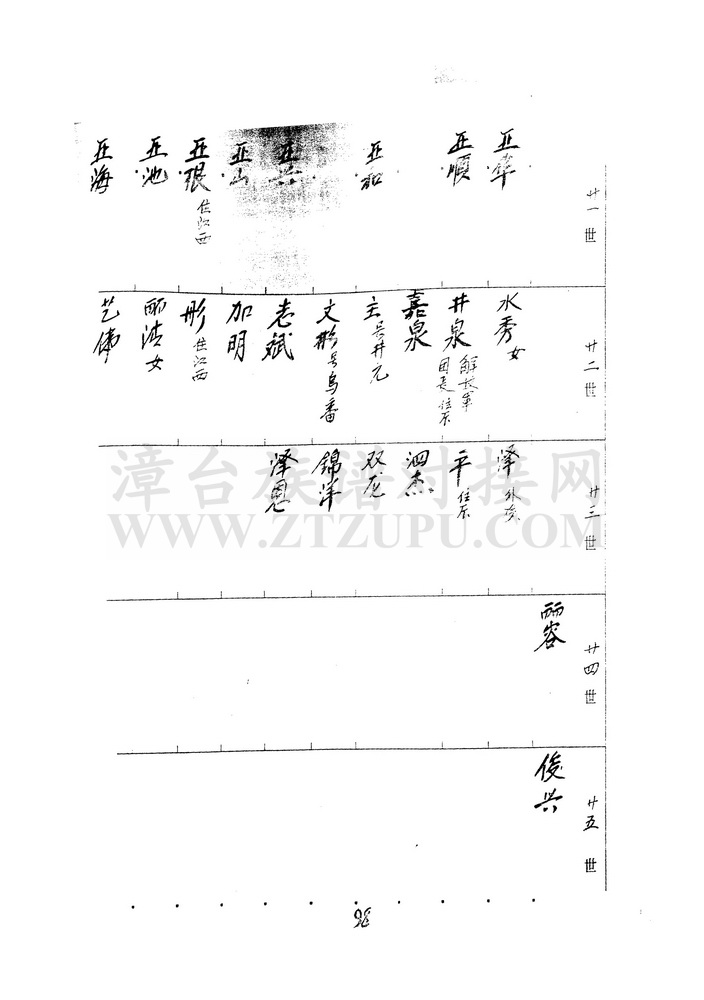 廿一世
亚华
亚顺
亚和
亚兴
亚山
亚根 住江西
亚池
亚海
廿二世
水秀 女
井泉 解放军团长 住
嘉泉
主 井元
文彬 号乌番
志斌
加明
彤 住江西
丽清 女
艺伟
廿三世
泽 外
平 住
泗杰
双龙
锦洋
泽恩
廿四世
丽容
廿五世
俊兴
36
漳台族谱对接网
WWW.ZTZUPU.COM